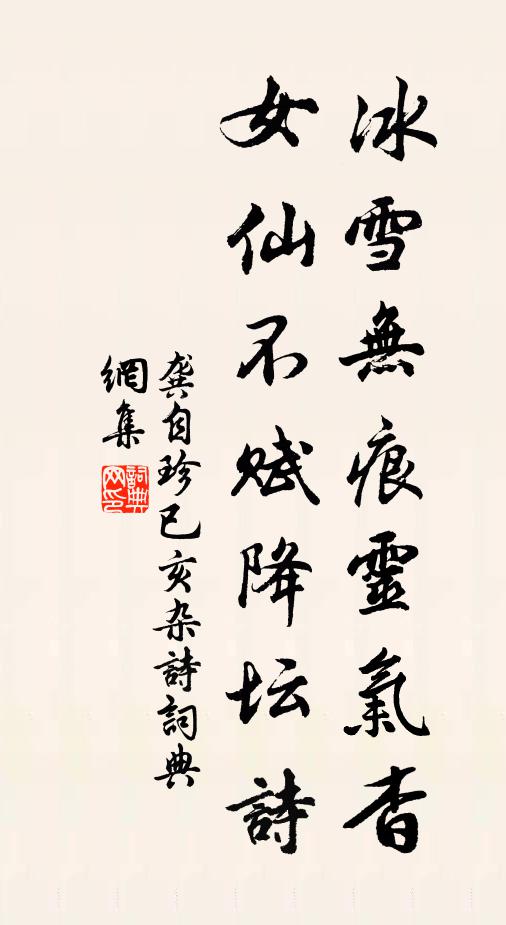 冰雪無痕靈氣杳
女仙不赋降坛詩
龔自珍己亥杂詩詞典
網集
詞典网印